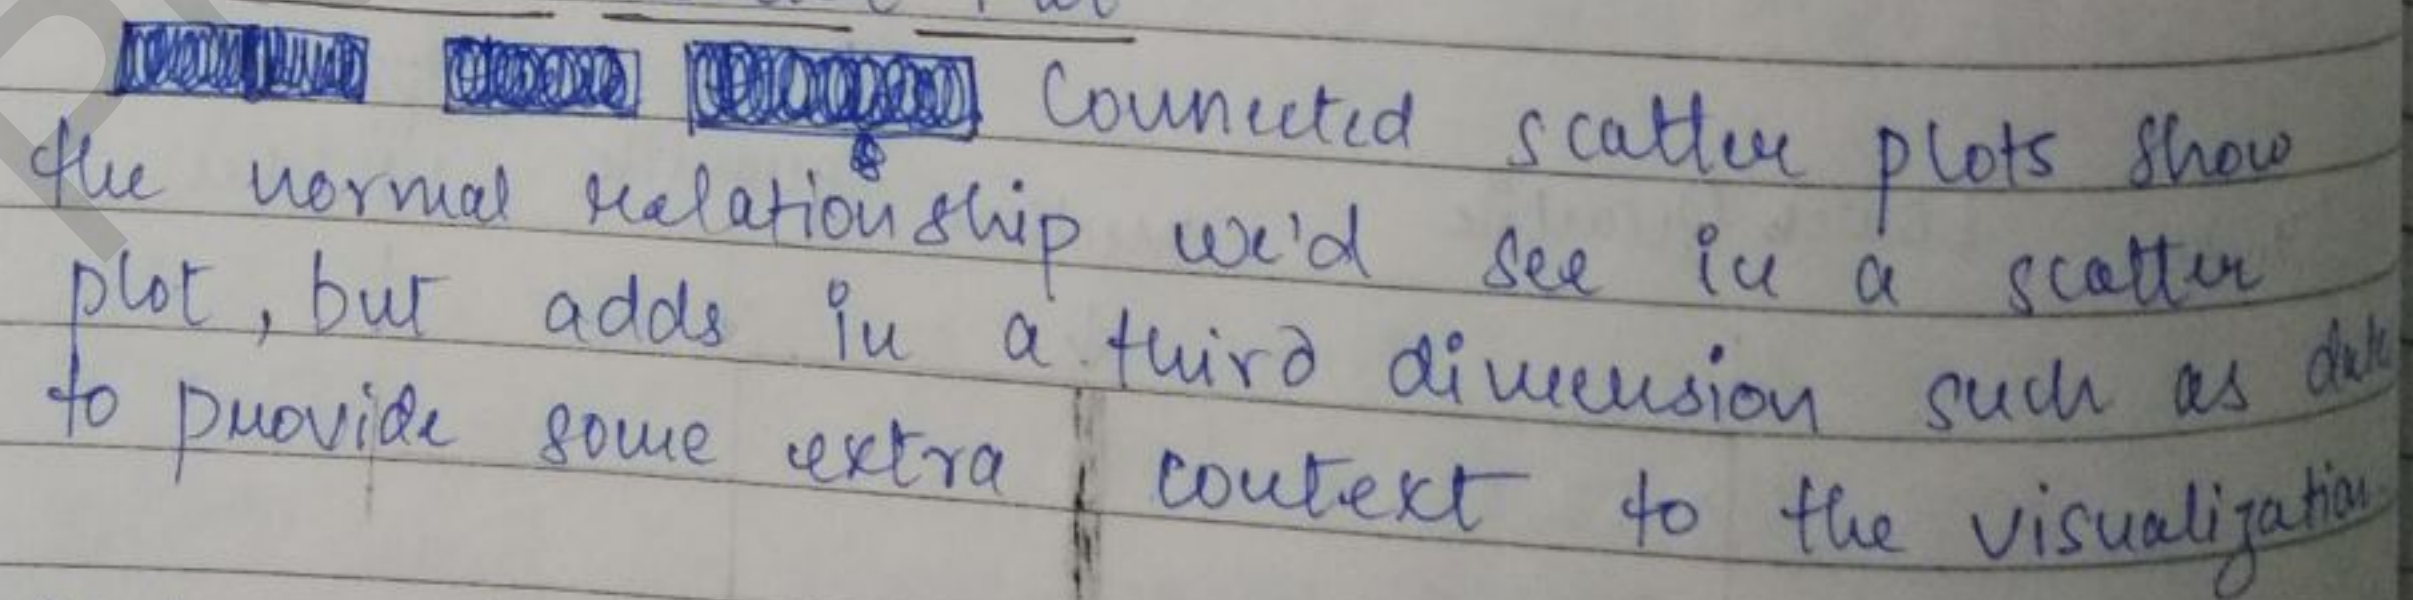 Connected scatter plots show
the normal relationship we'd see in a scatter
plot, but adds in a third dimension such as date
to provide some extra context to the visualization.